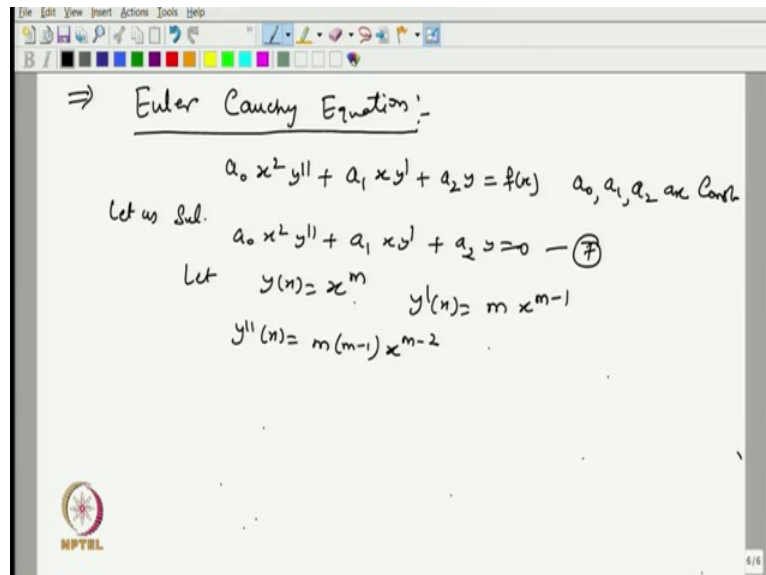 File Edit View Insert Actions Tools Help
B I
⇒ Euler Cauchy Equation:-
a₀ x² y'' + a₁ x y' + a₂ y = f(x) a₀, a₁, a₂ are Const
Let us Sol.
a₀ x² y'' + a₁ x y' + a₂ y = 0 — ⑦
Let y(x) = x^m y'(x) = m x^{m-1}
y''(x) = m(m-1) x^{m-2}
NPTEL
6/6